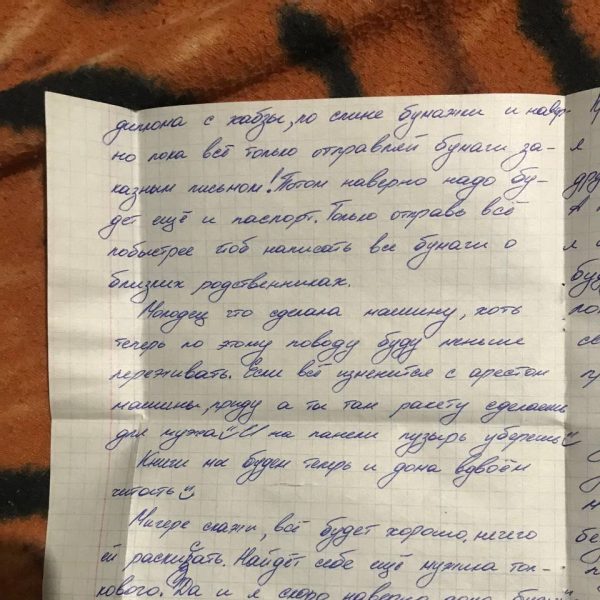 диплома с хабзы, по спине бумажки и навер-
но пока всё только отправляй бумаги за-
казным письмом! Потом наверно надо бу-
дет ещё и паспорт. Только отправь всё
побыстрее чтоб написать все бумаги о
близких родственниках.
Молодец что сделала машину, хоть
теперь по этому поводу буду меньше
переживать. Если всё изменится с арестом
машины, приду а ты там ракету сделаешь
для мужа И на панели пузырь уберешь
Книги мы будем теперь и дома вдвоём
читать
скажи, всё будет хорошо, нечего
ей раскисать. Найдёт себе ещё мужика тол-
кового. Да и я скоро наверно дома
я
А
я